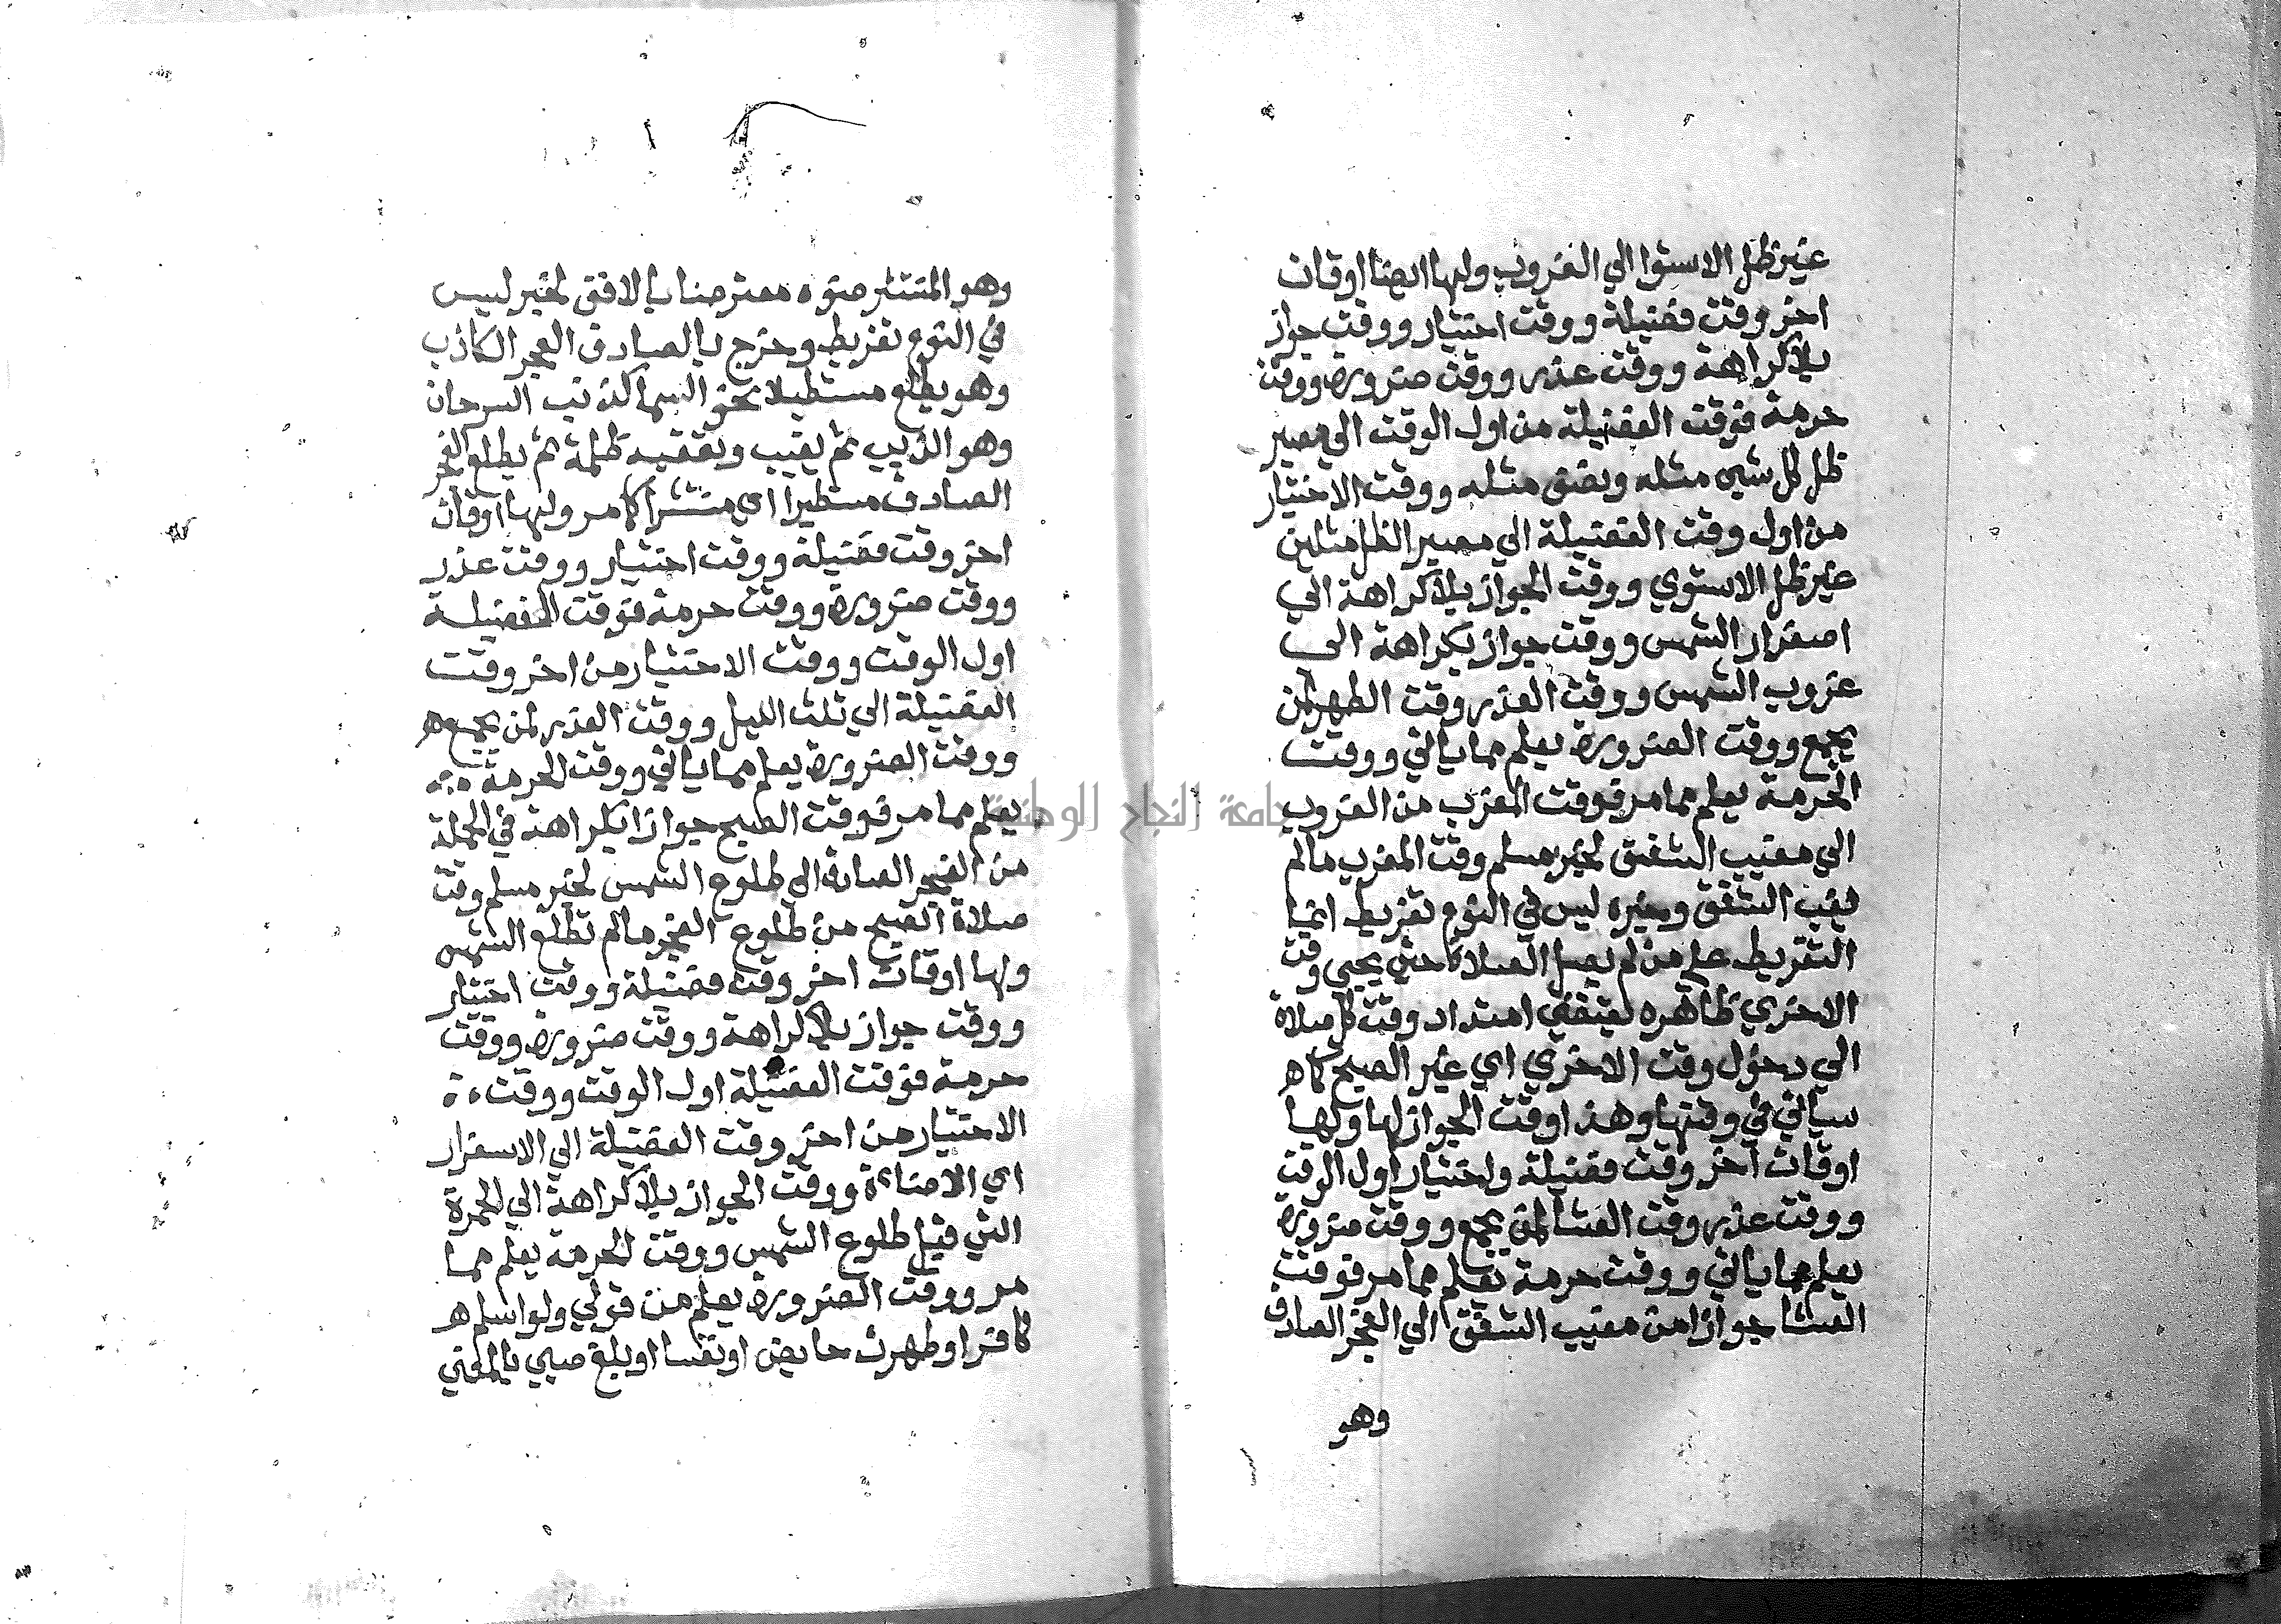 غير ظل الاستوا الي الغروب ولها ايضا اوقات
اخر وقت فضيلة ووقت اختيار ووقت جواز
بلا كراهة ووقت عذر ووقت ضرورة ووقت
حرمة فوقت الفضيلة من اول الوقت الي مصير
ظل كل شي مثله ونصف مثله ووقت الاختيار
من اول وقت الفضيلة الي مصير الظل مثلين
غير ظل الاستوي ووقت الجواز بلا كراهة الي
اصفرار الشمس ووقت جواز بكراهة الى
غروب الشمس ووقت العذر وقت الظهر لمن
يجمع ووقت الضرورة يعلم مما ياتي ووقت
الحرمة يعلم مما مر فوقت المغرب من الغروب
الى مغيب الشفق لخبر مسلم وقت المغرب مالم
يغب الشفق وخبره ليس في النوم تفريط انما
التفريط على من لم يصل الصلاة حتى يجيى وقت
الاخري ظاهره يقتضي امتداد وقت كل صلاة
الي دخول وقت الاخري اي غير الصبح كما ه
سياتي في وقتها وهذا وقت الجواز لها ولها
اوقات اخر وقت فضيلة واختيار اول الوقت
ووقت عذر وقت العشا لمن يجمع ووقت ضرورة
يعلم مما ياتي ووقت حرمة يعلم مما مر فوقت
العشا جوازا من مغيب الشفق الي الفجر الصادق
وهو
وهو المنتشر ضوه معترضا بالافق لخبر ليس
في النوم تفريط وخرج بالصادق الفجر الكاذب
وهو يطلع مستطيلا نحو السما كذنب السرحان
وهو الذيب ثم يغيب وتعقبه ظلمة ثم يطلع الفجر
الصادق مستطيرا اي منتشرا كما مر ولها اوقات
اخر وقت فضيلة ووقت اختيار ووقت عذر
ووقت ضرورة ووقت حرمة فوقت الفضيلة
اول الوقت ووقت الاختيار من اخر وقت
الفضيلة الي ثلث الليل ووقت العذر لمن يجمع ه
ووقت الضرورة يعلم مما ياتي ووقت الحرمة
يعلم مما مر فوقت الصبح جوازا بكراهة في الجملة
من الفجر الصادق الى طلوع الشمس لخبر مسلم وقت
صلاة الصبح من طلوع الفجر مالم تطلع الشمس
ولها اوقات اخر وقت فضيلة ووقت اختيار
ووقت جواز بلا كراهة ووقت ضرورة ووقت
حرمة فوقت الفضيلة اول الوقت ووقت
الاختيار من اخر وقت الفضيلة الي الاسفرار
اي الاضاءة ووقت الجواز بلا كراهة الي الحمرة
التي قبل طلوع الشمس ووقت الحرمة يعلم مما
مر ووقت الضرورة يعلم من قولي ولو اسلم ه
كافر او طهرت حايض او نفسا او بلغ صبي بالمعني
جامعة النجاح الوطنية